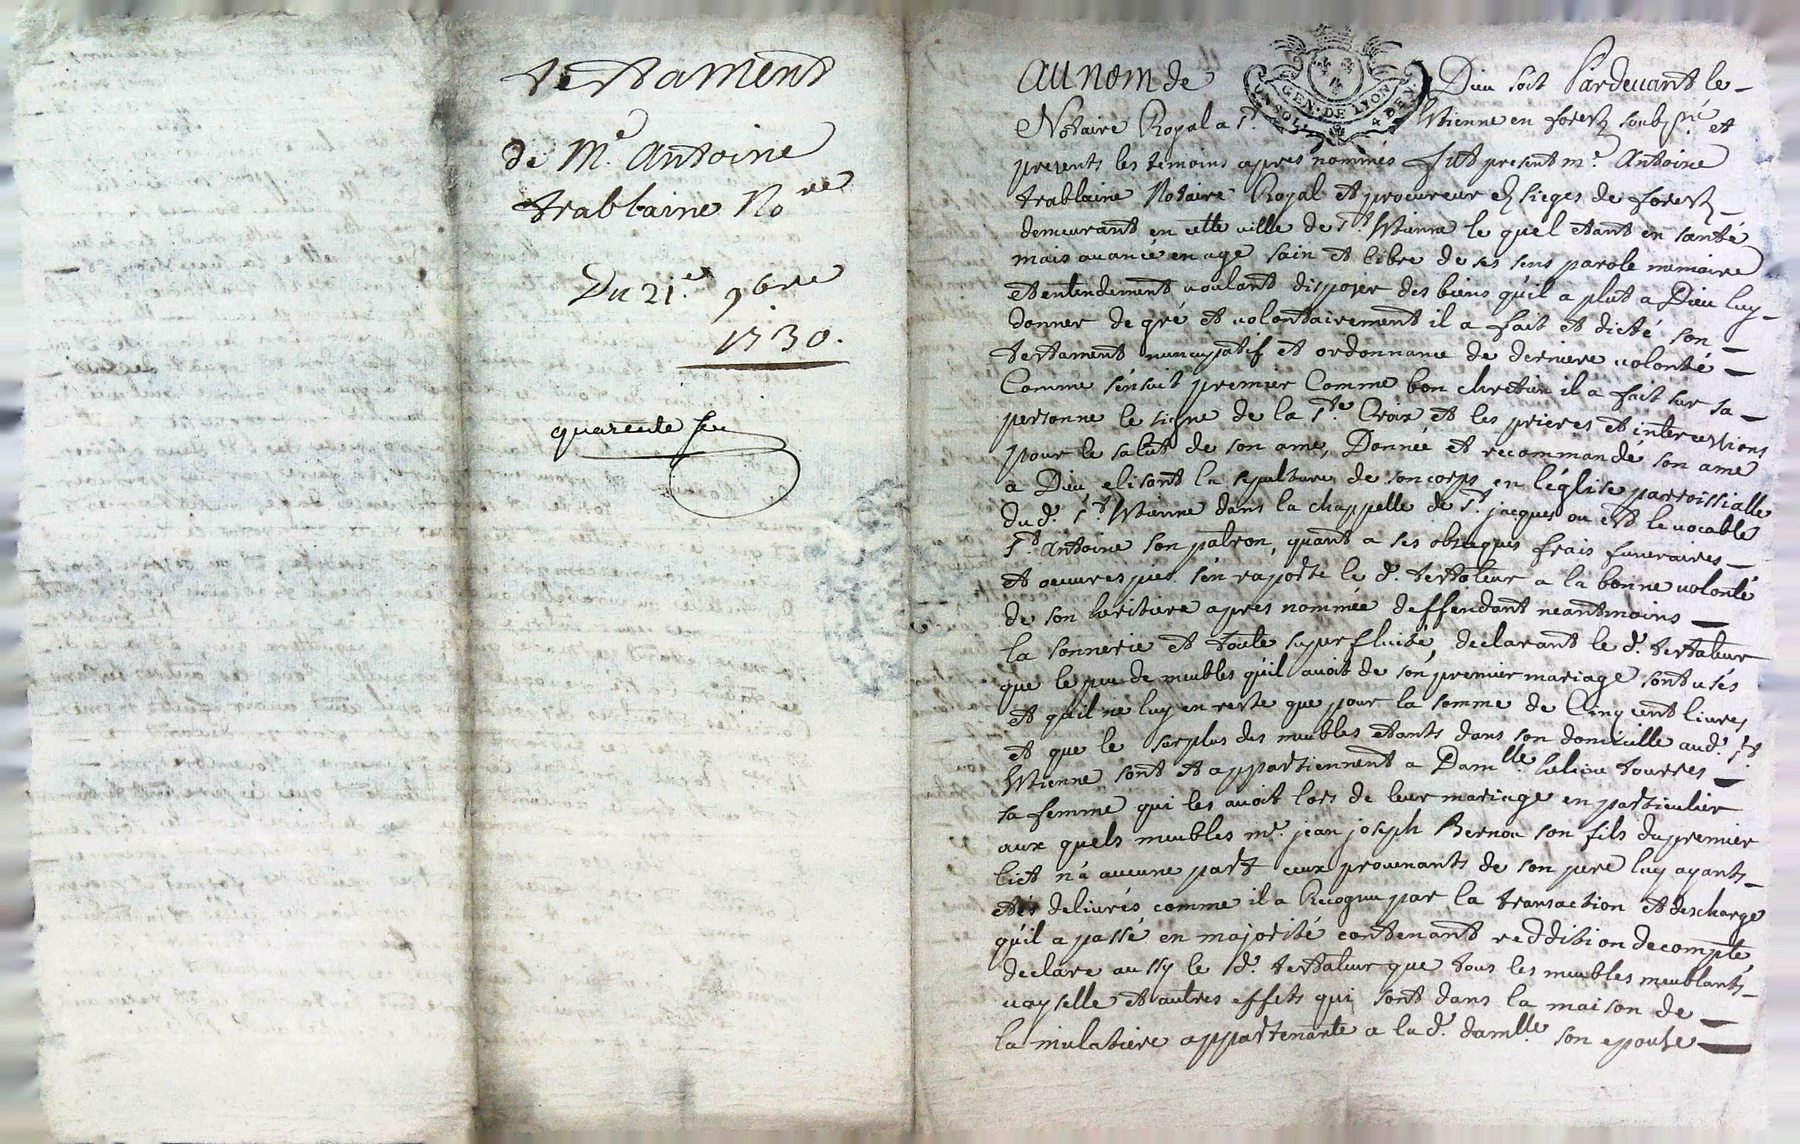 testament
de Me Antoine
trablaine Nore
Du 21e 9bre
1730.
quarente
GEN. DE LYON
au nom de Dieu soit Pardevant le
Notaire Royal a St Etienne en forest soubsné et
presents les temoins apres nommés fut present me Antoine
trablaine Notaire Royal et procureur es sieges de forest
demeurant en cette ville de St Etienne le quel etant en santé
mais avancé en age sain et libre de ses sens parole memoire
et entendement voulant disposer des biens qu'il a plut a Dieu luy
donner de gré et volontairement il a fait et dicté son
testament nuncupatif et ordonnance de derniere volonté
Comme s'ensuit premier Comme bon chretien il a fait sur sa
personne le signe de la Ste Croix et les prieres et intercessions
pour le salut de son ame, Donnée et recommandé son ame
a Dieu elisant la sepulture de son corps en l'église parroissialle
du d. St Etienne dans la chappelle de St jacques ou est le vocable
St Antoine son patron, quant a ses obseques frais funeraires
et oeuvres pies s'en raporte le d. testateur a la bonne volonté
de son heritiere apres nommée deffendant neantmoins
la sonnerie et toute superfluité, declarant le d. testateur
que le peu de meubles qu'il avoit de son premier mariage sont usés
et qu'il ne luy en reste que pour la somme de Cinq cent livres
et que le surplus des meubles etants dans son domicille aud. St
Etienne sont et appartiennent a Damlle tourres
sa femme qui les avoit lors de leur mariage en particulier
aux quels meubles me. jean joseph Bernou son fils du premier
lict n'a aucune part ceux provenants de son pere luy ayants
etés delivrés comme il a Recognu par la transaction et descharge
qu'il a passé en majorité contenant reddition de compte,
declare aussy le d. testateur que tous les meubles meublants
vayselle et autres effets qui sont dans la maison de
la mulatiere appartenante a la d. damlle son epouse